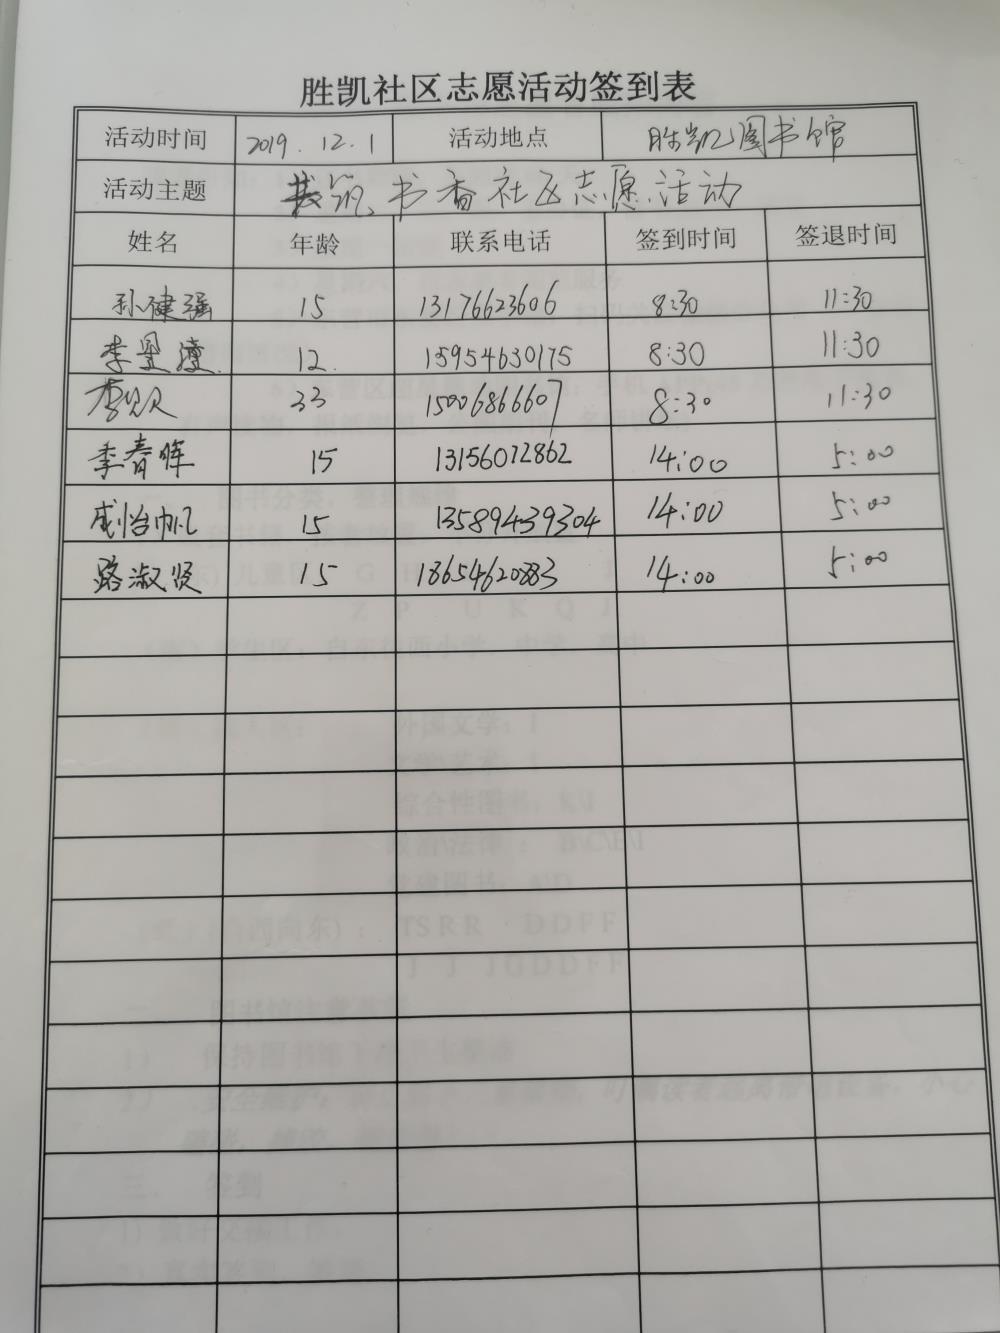 胜凯社区志愿活动签到表
活动时间 2019.12.1 活动地点 胜凯图书馆
活动主题 共筑书香社区志愿活动
姓名 年龄 联系电话 签到时间 签退时间
孙健强 15 13176623606 8:30 11:30
李昱 12 15954630175 8:30 11:30
李 33 15006866607 8:30 11:30
李春晖 15 13156072862 14:00 5:00
成怡帆 15 13589439304 14:00 5:00
路淑贤 15 18654620883 14:00 5:00